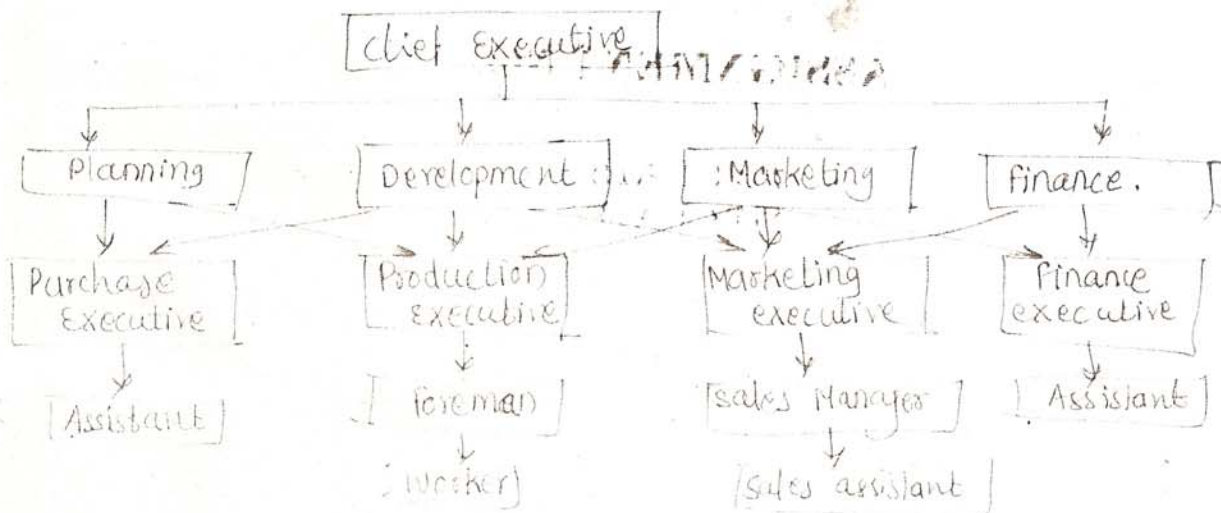 Chief Executive
Planning
Development
Marketing
Finance.
Purchase
Executive
Production
Executive
Marketing
executive
Finance
executive
Assistant
Foreman
Sales Manager
Assistant
Worker
Sales assistant